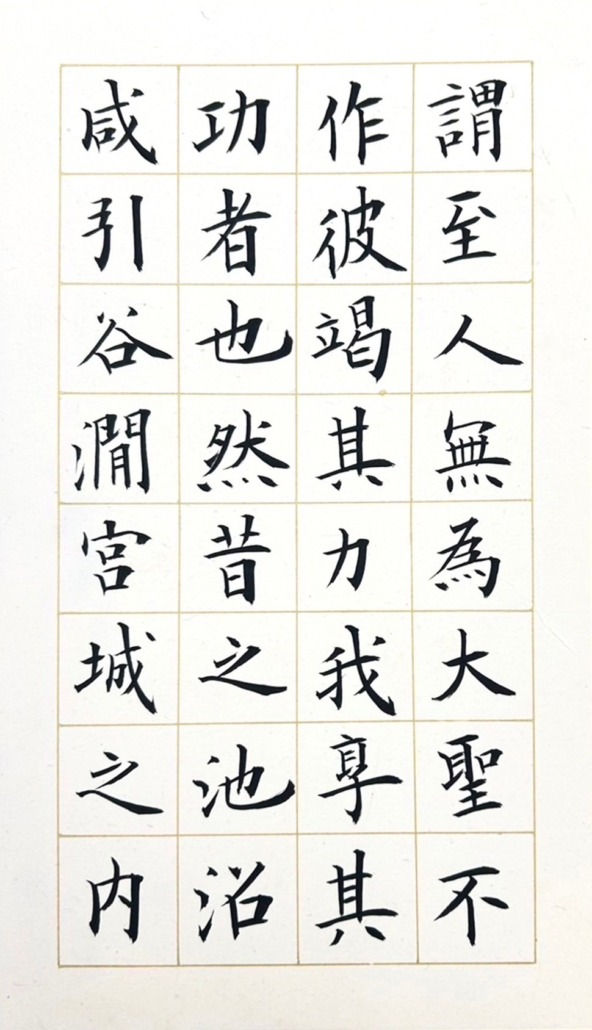 謂至人無為大聖不
作彼竭其力我享其
功者也然昔之池沼
咸引谷澗宮城之内